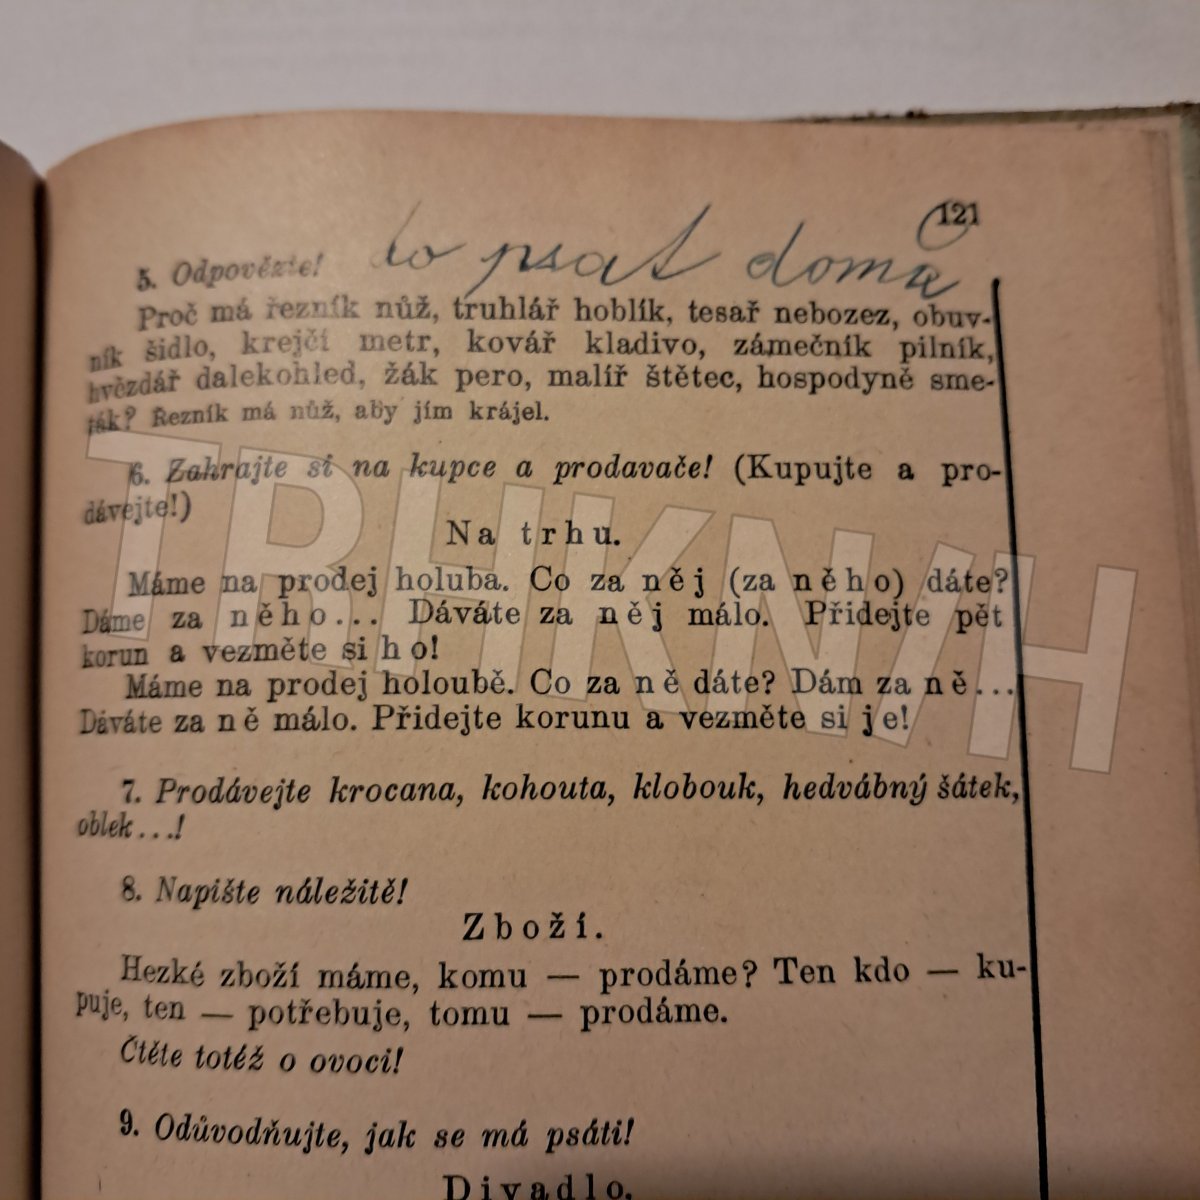 121
5. Odpovězte! to psat doma
Proč má řezník nůž, truhlář hoblík, tesař nebozez, obuv-
ník šidlo, krejčí metr, kovář kladivo, zámečník pilník,
hvězdář dalekohled, žák pero, malíř štětec, hospodyně sme-
ták? Řezník má nůž, aby jím krájel.
6. Zahrajte si na kupce a prodavače! (Kupujte a pro-
dávejte!)
Na trhu.
Máme na prodej holuba. Co za něj (za něho) dáte?
Dáme za něho... Dáváte za něj málo. Přidejte pět
korun a vezměte si ho!
Máme na prodej holoubě. Co za ně dáte? Dám za ně...
Dáváte za ně málo. Přidejte korunu a vezměte si je!
7. Prodávejte krocana, kohouta, klobouk, hedvábný šátek,
oblek...!
8. Napište náležitě!
Zboží.
Hezké zboží máme, komu — prodáme? Ten kdo — ku-
puje, ten — potřebuje, tomu — prodáme.
Čtěte totéž o ovoci!
9. Odůvodňujte, jak se má psáti!
Divadlo.